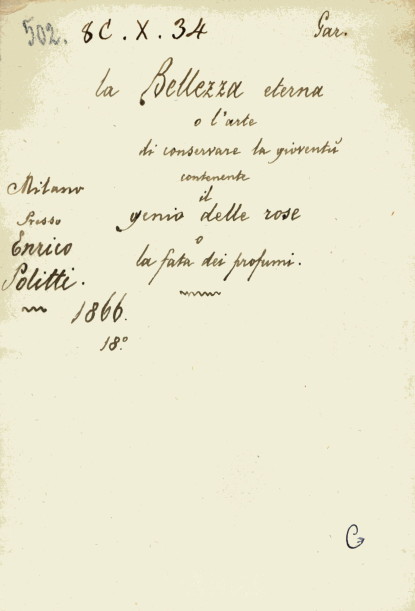 502. 8C.X.34 Gar.
la Bellezza eterna
o l'arte
di conservare la gioventù
contenente
il
genio delle rose
o
la fata dei profumi.
Milano
presso
Enrico
Politti.
1866.
18º